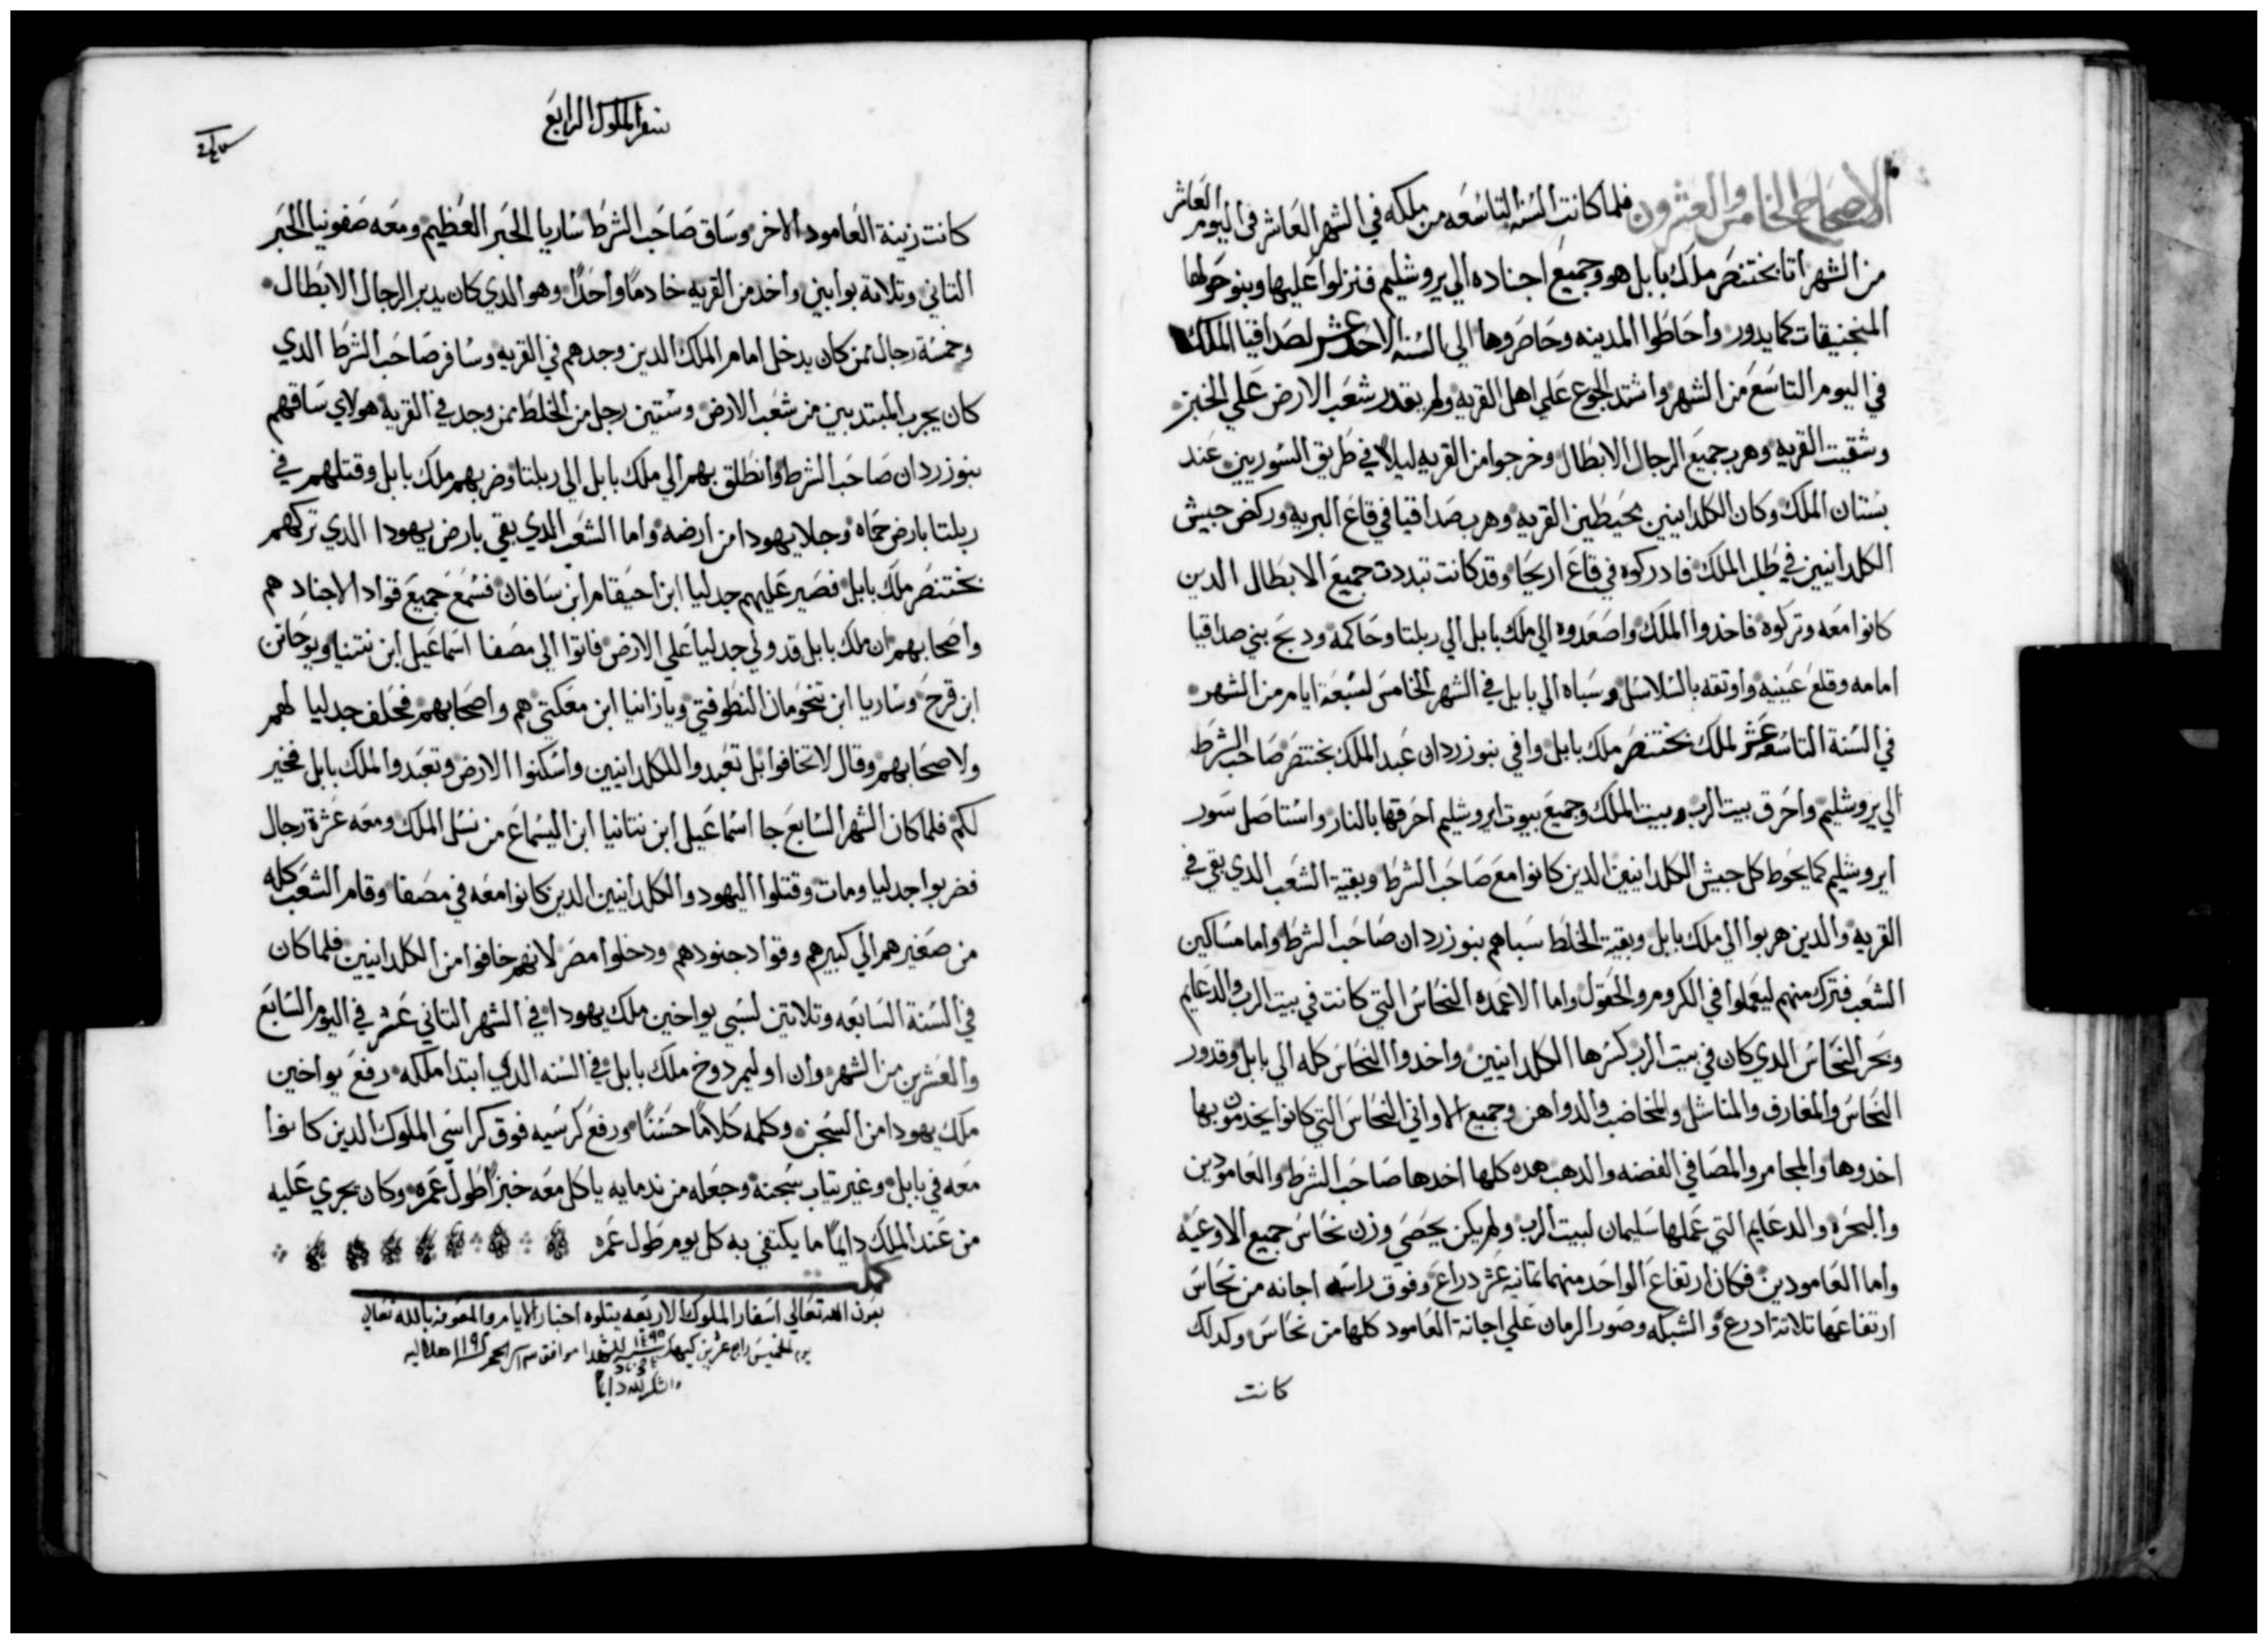 الاصحاح الخامس والعشرون فلما كانت السنه التاسعه من ملكه في الشهر العاشر في اليوم العاشر
من الشهر اتا بختنصر ملك بابل هو وجميع اجناده الي يروشليم فنزلوا عليها وبنو حولها
المنجنيقات كما يدور واحاطوا المدينه وحاصروها الي السنه الاحد عشر لصداقيا الملك
في اليوم التاسع من الشهر واشتد الجوع علي اهل القريه ولم يقدر شعب الارض علي الخبز
وشقيت القريه وهرب جميع الرجال الابطال وخرجوا من القريه ليلاً في طريق السوريين عند
بستان الملك وكان الكلدانيين محيطين القريه وهرب صداقيا في قاع البريه وركض جيش
الكلدانيين في طلب الملك فادركوه في قاع اريحا وقد كانت تبددت جميع الابطال الدين
كانوا معه وتركوه فاخدوا الملك واصعدوه الي ملك بابل الي ربلتا وحاكمه ودبح بني صداقيا
امامه وقلع عينيه واوتقه بالسلاسل وسباه الي بابل في الشهر الخامس لسبعة ايام من الشهر
في السنة التاسعه عشر لملك بختنصر ملك بابل وافي نبوزردان عبد الملك بختنصر صاحب الشرط
الي يروشليم واحرق بيت الرب وبيت الملك وجميع بيوت ايروشليم احرقها بالنار واستاصل سور
ايروشليم كما يحوط كل جيش الكلدانيين الدين كانوا مع صاحب الشرط وبقية الشعب الدي بقي في
القريه والدين هربوا الي ملك بابل وبقية الخلط سباهم نبوزردان صاحب الشرط واما مساكين
الشعب فترك منهم ليعملوا في الكروم والحقول واما الاعمده النحاس التي كانت في بيت الرب والدعايم
وبحر النحاس الدي كان في بيت الرب كسرها الكلدانيين واخدوا النحاس كله الي بابل وقدور
النحاس والمغارف والمناشل والمخاضب والدواهن وجميع الاواني النحاس التي كانوا يخدمون بها
اخدوها والمجامر والمصافي الفضه والدهب هده كلها اخدها صاحب الشرط والعامودين
والبحره والدعايم التي عملها سليمان لبيت الرب ولم يكن يحصي وزن نحاس جميع الاوعيه
واما العامودين فكان ارتفاع الواحد منهما تمانيه عشر دراع وفوق راسه اجانه من نحاس
ارتفاعها تلاتة ادرع والشبكه وصور الرمان علي اجانة العامود كلها من نحاس وكدلك
كانت
سفر الملوك الرابع
كانت زينة العامود الاخر وساق صاحب الشرط ساريا الحبر العظيم ومعه صفونيا الحبر
التاني وتلاتة بوابين واخد من القريه خادماً واحداً وهو الدي كان يدبر الرجال الابطال
وخمسة رجال ممن كان يدخل امام الملك الدين وجدهم في القريه وسافر صاحب الشرط الدي
كان يجرب المبتديين من شعب الارض وستين رجل من الخلط ممن وجد في القريه هولاي ساقهم
نبوزردان صاحب الشرط وانطلق بهم الي ملك بابل الي ربلتا وضربهم ملك بابل وقتلهم في
ربلتا بارض حماه وجلا يهودا من ارضه واما الشعب الدي بقي بارض يهودا الدي تركهم
بختنصر ملك بابل فصير عليهم جدليا ابن احيقام ابن سافان فسمع جميع قواد الاجناد هم
واصحابهم ان ملك بابل قد ولي جدليا علي الارض فاتوا الي مصفا اسماعيل ابن نتنيا ويوحانن
ابن قرح وساريا ابن تنحومان النطوفتي ويازانيا ابن معكتي هم واصحابهم فحلف جدليا لهم
ولاصحابهم وقال لا تخافوا بل تعبدوا للكلدانيين واسكنوا الارض وتعبدوا لملك بابل فخير
لكم فلما كان الشهر السابع جا اسماعيل ابن نتانيا ابن اليسماع من نسل الملك ومعه عشرة رجال
فضربوا جدليا ومات وقتلوا اليهود والكلدانيين الدين كانوا معه في مصفا وقام الشعب كله
من صغيرهم الي كبيرهم وقواد جنودهم ودخلوا مصر لانهم خافوا من الكلدانيين فلما كان
في السنة السابعه وتلاتين لسبي يواخين ملك يهودا في الشهر التاني عشر في اليوم السابع
والعشرين من الشهر وان اوليمردوخ ملك بابل في السنه الدي ابتدا ملكه رفع يواخين
ملك يهودا من السجن وكلمه كلاماً حسناً ورفع كرسيه فوق كراسي الملوك الدين كانوا
معه في بابل وغير تياب سجنه وجعله من ندمايه ياكل معه خبزاً طول عمره وكان يجري عليه
من عند الملك دايماً ما يكتفي به كل يوم طول عمره
كمل
بعون الله تعالي اسفار الملوك الاربعه يتلوه اخبار الايام والمعونه بالله تعالي
يوم الخميس رابع عشرين كيهك ١٤٩٥ للشهدا موافق ١١٩٢ هلاليه
والشكر لله دايماً